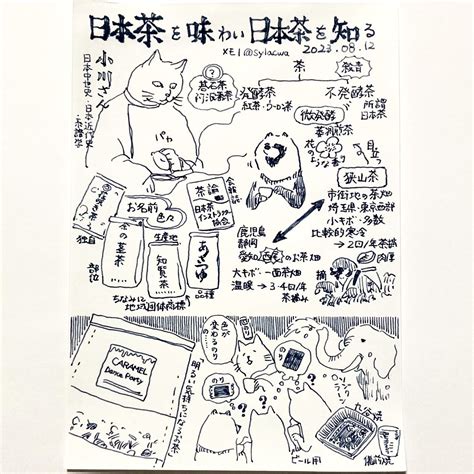 日本茶を味わい日本茶を知る
XEI@sylacwa
2023.08.12
小川さん
日本中世史・日本近代史・茶諸学
茶
?
碁石茶
阿波番茶
発酵茶
紅茶・ウーロン茶
不発酵茶
所謂
日本茶
微発酵
萎凋煎茶
花のような香り
目立つ
狭山茶
市街地の茶畑
埼玉県・東京西部
小キボ・多数
比較的寒冷
→2回/年茶摘
肉厚
摘
鹿児島
静岡
愛知
のお茶畑
大キボ・一面茶畑
温暖→3-4回/年
茶摘み
お名前
色々
茶論
日本茶
インストラクター
協会
会報誌
独自
部位
冬の茎茶
生産地
知覧茶
あさつゆ
品種
ちなみに
地域団体商標
CARAMEL
Dance Party
明るい気持ちになるお茶
色が
変わるのり
のり
?
?
?
?
ビール用